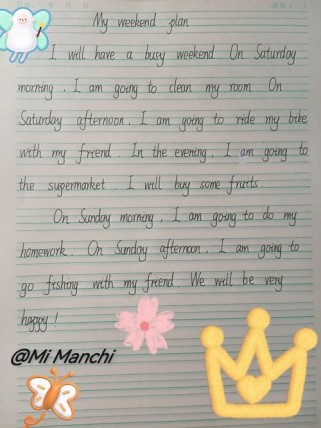 My weekend plan
I will have a busy weekend. On Saturday
morning, I am going to clean my room. On
Saturday afternoon, I am going to ride my bike
with my friend. In the evening, I am going to
the supermarket. I will buy some fruits.
On Sunday morning, I am going to do my
homework. On Sunday afternoon, I am going to
go fishing with my friend. We will be very
happy!
@Mi Manchi